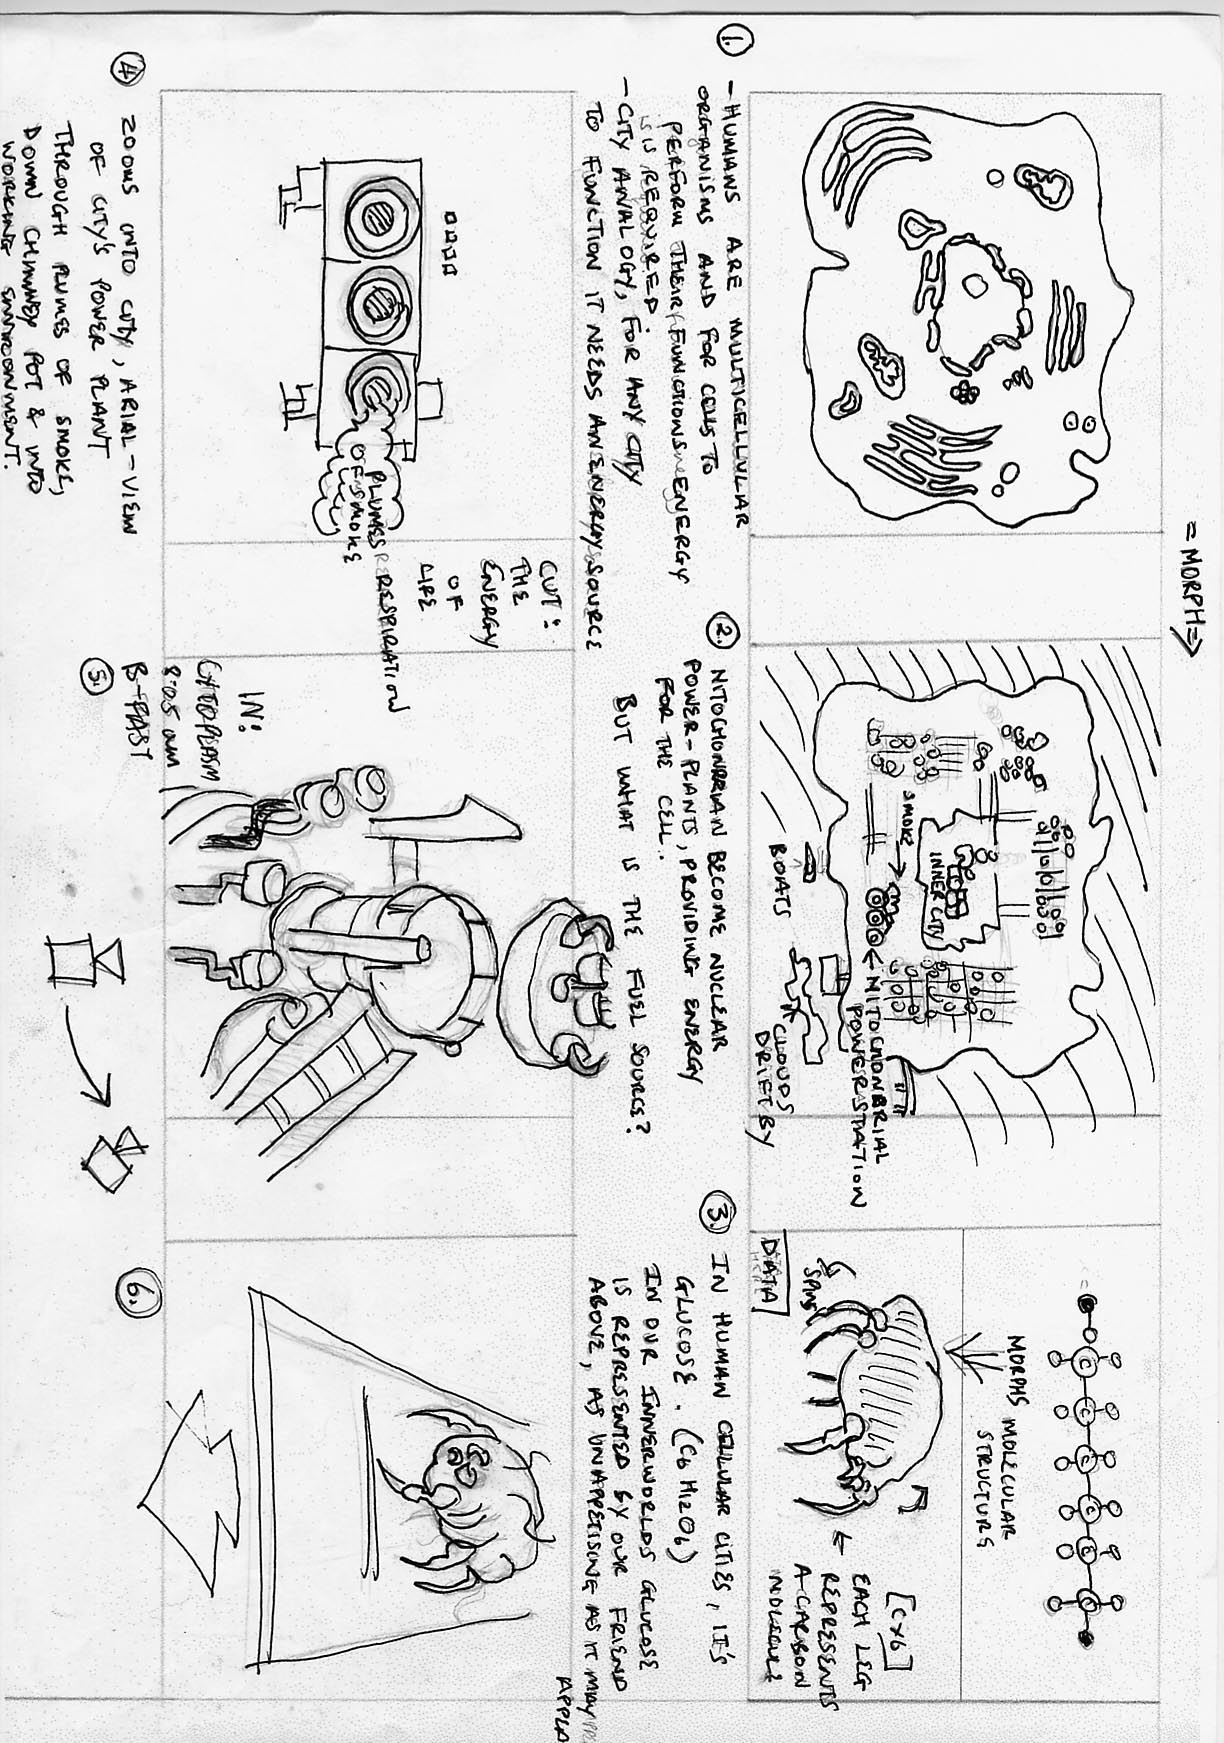 = MORPH =>
1.
- HUMANS ARE MULTICELLULAR
ORGANISMS AND FOR CELLS TO
PERFORM THEIR FUNCTIONS ENERGY
IS REQUIRED.
- CITY ANALOGY, FOR ANY CITY
TO FUNCTION IT NEEDS AN ENERGY SOURCE
SMOKE
INNER CITY
MITOCHONDRIAL
POWERSTATION
BOATS
CLOUDS
DRIFT BY
2. MITOCHONDRIAN BECOME NUCLEAR
POWER-PLANTS, PROVIDING ENERGY
FOR THE CELL.
BUT WHAT IS THE FUEL SOURCE?
C C C C C C
MORPHS MOLECULAR
STRUCTURE
SPINS
DATA
[C×6]
← EACH LEG
REPRESENTS
A CARBON
MOLECULE
3. IN HUMAN CELLULAR CITIES, IT'S
GLUCOSE. (C6 H12 O6)
IN OUR INNERWORLDS GLUCOSE
IS REPRESENTED BY OUR FRIEND
ABOVE, AS UNAPPETISING AS IT MAY
PLUMES
OF SMOKE
RESPIRATION
CUT:
THE
ENERGY
OF
LIFE
4. ZOOMS INTO CITY, ARIAL-VIEW
OF CITY'S POWER PLANT
THROUGH PLUMES OF SMOKE,
DOWN CHIMNEY POT & INTO
WORKING ENVIROONMENT.
IN:
CYTOPLASM
8:05 am
B-FAST
5.
6.